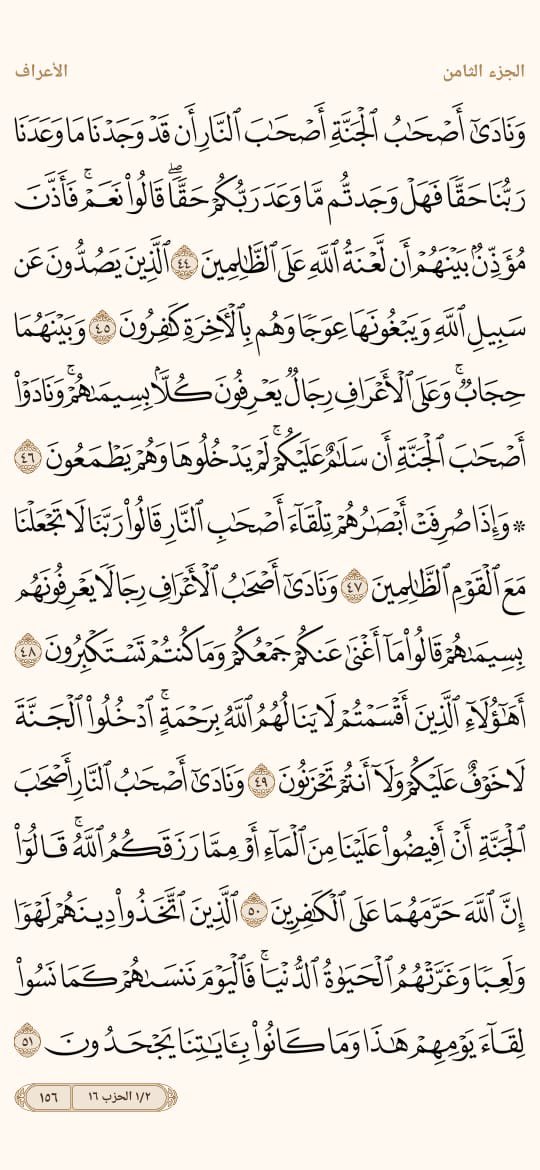 الجزء الثامن
الأعراف
وَنَادَىٰٓ أَصْحَٰبُ ٱلْجَنَّةِ أَصْحَٰبَ ٱلنَّارِ أَن قَدْ وَجَدْنَا مَا وَعَدَنَا
رَبُّنَا حَقًّا فَهَلْ وَجَدتُّم مَّا وَعَدَ رَبُّكُمْ حَقًّا ۖ قَالُوا۟ نَعَمْ ۚ فَأَذَّنَ
مُؤَذِّنٌۢ بَيْنَهُمْ أَن لَّعْنَةُ ٱللَّهِ عَلَى ٱلظَّٰلِمِينَ ٤٤ ٱلَّذِينَ يَصُدُّونَ عَن
سَبِيلِ ٱللَّهِ وَيَبْغُونَهَا عِوَجًا وَهُم بِٱلْـَٔاخِرَةِ كَٰفِرُونَ ٤٥ وَبَيْنَهُمَا
حِجَابٌ ۚ وَعَلَى ٱلْأَعْرَافِ رِجَالٌ يَعْرِفُونَ كُلًّۢا بِسِيمَىٰهُمْ ۚ وَنَادَوْا۟
أَصْحَٰبَ ٱلْجَنَّةِ أَن سَلَٰمٌ عَلَيْكُمْ ۚ لَمْ يَدْخُلُوهَا وَهُمْ يَطْمَعُونَ ٤٦
* وَإِذَا صُرِفَتْ أَبْصَٰرُهُمْ تِلْقَآءَ أَصْحَٰبِ ٱلنَّارِ قَالُوا۟ رَبَّنَا لَا تَجْعَلْنَا
مَعَ ٱلْقَوْمِ ٱلظَّٰلِمِينَ ٤٧ وَنَادَىٰٓ أَصْحَٰبُ ٱلْأَعْرَافِ رِجَالًا يَعْرِفُونَهُم
بِسِيمَىٰهُمْ قَالُوا۟ مَآ أَغْنَىٰ عَنكُمْ جَمْعُكُمْ وَمَا كُنتُمْ تَسْتَكْبِرُونَ ٤٨
أَهَٰٓؤُلَآءِ ٱلَّذِينَ أَقْسَمْتُمْ لَا يَنَالُهُمُ ٱللَّهُ بِرَحْمَةٍ ۚ ٱدْخُلُوا۟ ٱلْجَنَّةَ
لَا خَوْفٌ عَلَيْكُمْ وَلَآ أَنتُمْ تَحْزَنُونَ ٤٩ وَنَادَىٰٓ أَصْحَٰبُ ٱلنَّارِ أَصْحَٰبَ
ٱلْجَنَّةِ أَنْ أَفِيضُوا۟ عَلَيْنَا مِنَ ٱلْمَآءِ أَوْ مِمَّا رَزَقَكُمُ ٱللَّهُ ۚ قَالُوٓا۟
إِنَّ ٱللَّهَ حَرَّمَهُمَا عَلَى ٱلْكَٰفِرِينَ ٥٠ ٱلَّذِينَ ٱتَّخَذُوا۟ دِينَهُمْ لَهْوًا
وَلَعِبًا وَغَرَّتْهُمُ ٱلْحَيَوٰةُ ٱلدُّنْيَا ۚ فَٱلْيَوْمَ نَنسَىٰهُمْ كَمَا نَسُوا۟
لِقَآءَ يَوْمِهِمْ هَٰذَا وَمَا كَانُوا۟ بِـَٔايَٰتِنَا يَجْحَدُونَ ٥١
١/٢ الحزب ١٦
١٥٦